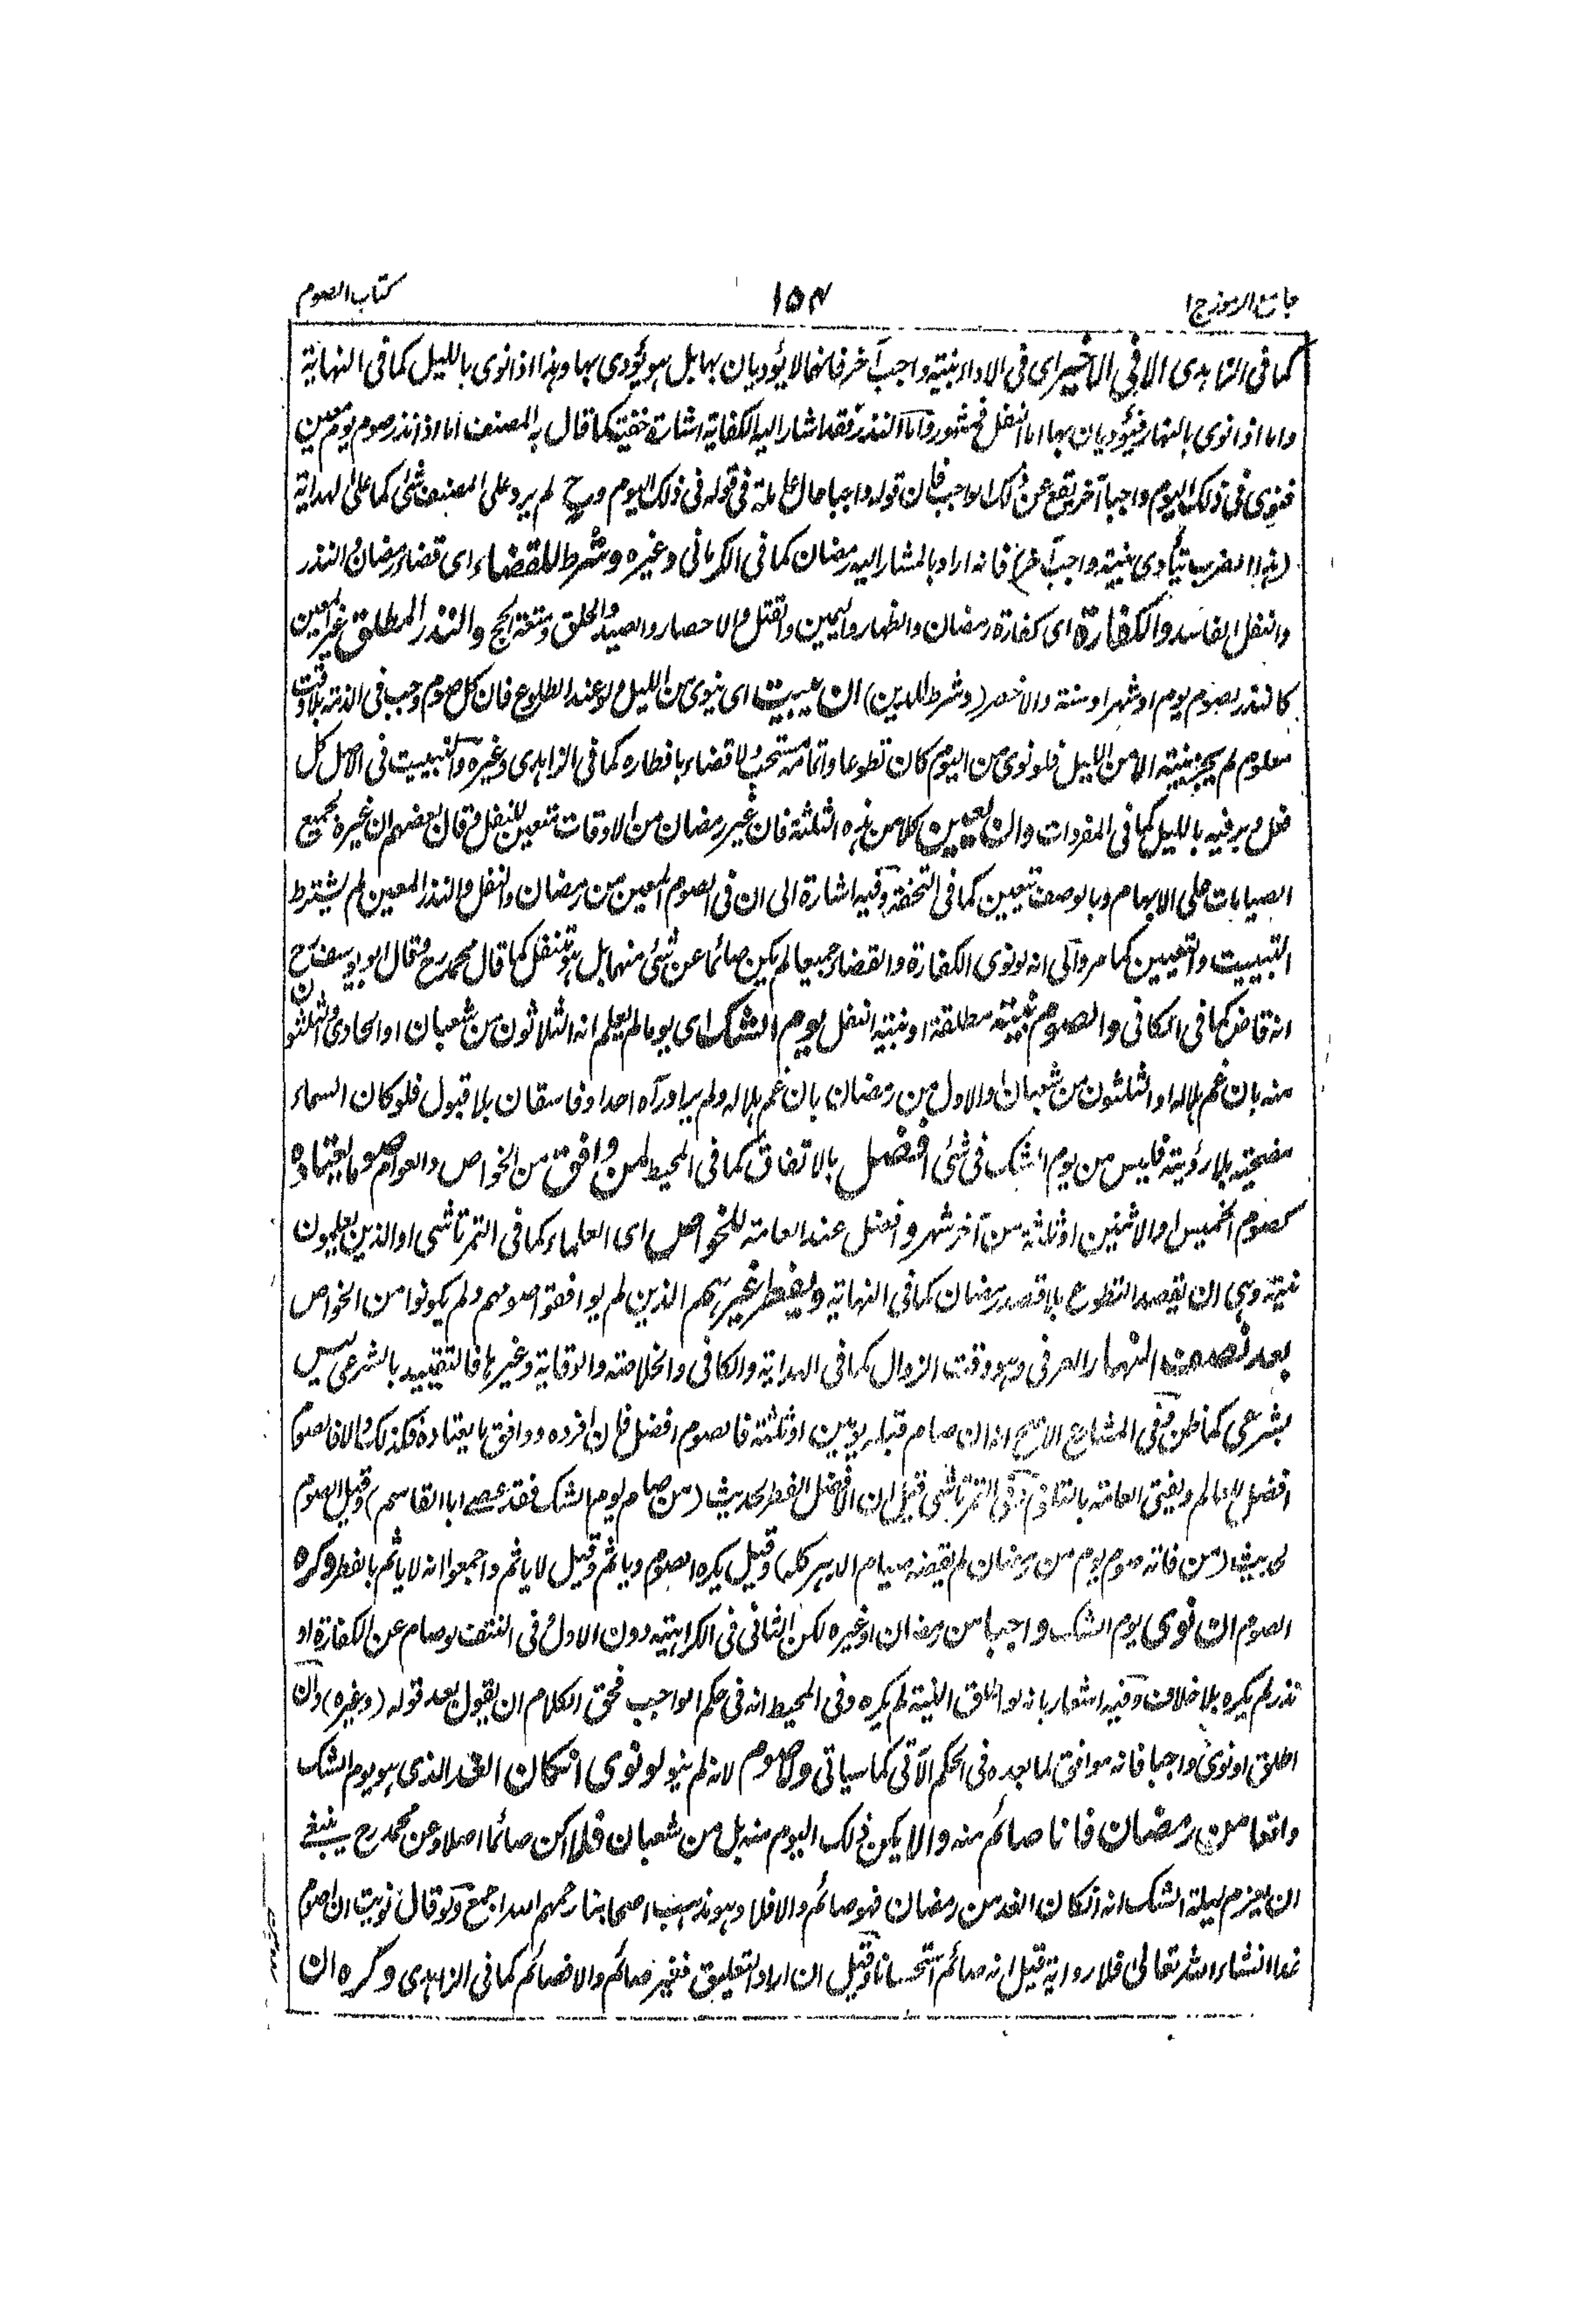 جامع الرموز ج ١
١٥٤
كتاب الصوم
كما فى الزاهدى الا فى الاخير اى فى الاداء بنية واجب آخر فانهما لا يؤديان بها بل هو يؤدى بها وهذا اذا نوى بالليل كما فى النهاية
واما اذا نوى بالنهار فيؤديان بها اما النفل فمشهور واما النذر فقد اشار اليه الكفاية اشارة خفية كما قال به المصنف اما اذا نذر صوم يوم معين
فنوى فى ذلك اليوم واجبا آخر يقع عن ذلك الواجب فان قوله واجبا حال علة فى قوله فى ذلك اليوم وح لم يرد على المصنف شئ كما على الهداية
(هذا الضرب يتأدى بنية واجب آخر) فانه اراد بالمشار اليه رمضان كما فى الكرمانى وغيره وشرط للقضاء اى قضاء رمضان والنذر
والنفل الفاسد والكفارة اى كفارة رمضان والظهار واليمين والقتل والاحصار والصيد والحلق ومتعة الحج والنذر المطلق غير المعين
كالنذر بصوم يوم او شهر او سنة والاخصر (وشرط للدين) ان يبيت اى ينوى من الليل ولو عند الطلوع فان كل صوم وجب فى الذمة بلا وقت
معلوم لم يجز بنيته الا من الليل فلو نوى من اليوم كان تطوعا واتمامه مستحب ولا قضاء بافطاره كما فى الزاهدى وغيره والتبييت فى الاصل كل
فعل دبر فيه بالليل كما فى المفردات وان يعين كلا من هذه الثلثة فان غير رمضان من الاوقات متعين للنفل وقال بعضهم ان غيره لجميع
الصيامات على الابهام وبالوصف تعيين كما فى التحفة وفيه اشارة الى ان فى الصوم المعين من رمضان والنفل والنذر المعين لم يشترط
التبييت والتعيين كما مر والى انه لو نوى الكفارة والقضاء جميعا لم يكن صائما عن شئ منهما بل هو تنفل كما قال محمد رح وقال ابو يوسف رح
انه قاض كما فى الكافى والصوم بنية مطلقة او بنية النفل يوم الشك اى يوما لم يعلم انه الثلاثون من شعبان او الحادى والثلثون
منه بان غم هلاله او الثلثون من شعبان او الاول من رمضان بان غم هلاله ولم ير او رآه احد او فاسقان بلا قبول فلو كان السماء
مضحية بلا رؤية فليس من يوم الشك فى شئ افضل بالاتفاق كما فى المحيط لمن وافق من الخواص والعوام صوما يعتاده
كصوم الخميس او الاثنين او ثلثة من آخر شهر وافضل عند العامة للخواص اى العلماء كما فى التمرتاشى او الذين يعلمون
نيته وهى ان يقصد التطوع بلا قصد رمضان كما فى النهاية ويفطر غيرهم الذين لم يوافقوا صومهم ولم يكونوا من الخواص
بعد نصف النهار العرفى وهو وقت الزوال كما فى الهداية والكافى والخلاصة والوقاية وغيرها فالتقييد بالشرعى ليس
بشرعى كما ظن ففى المشارع الاصح انه ان صام قبله يومين او ثلثة فالصوم افضل فان افرده ووافق ما يعتاده فكذلك والا فالصوم
افضل للعالم ويفتى العامة بالتلوم وفى التمرتاشى قيل ان الافضل الفطر لحديث (من صام يوم الشك فقد عصى ابا القاسم) وقيل الصوم
لحديث (من فاته صوم يوم من رمضان لم يقضه صيام الدهر كله) وقيل يكره الصوم وياثم وقيل لا ياثم واجمعوا انه لا ياثم بالفطر وكره
الصوم ان نوى يوم الشك واجبا من رمضان او غيره لكن الثانى فى الكراهية دون الاول وفى النتف لو صام عن الكفارة او
نذر لم يكره بلا خلاف وفيه اشعار بانه لو اطلق النية لم يكره وفى المحيط انه فى حكم الواجب فحق الكلام ان يقول بعد قوله (وغيره) وان
اطلق او نوى واجبا فانه موافق لما بعده فى الحكم الآتى كما سياتى ولا صوم لانه لم ينو لو نوى ان كان الغد الذى هو يوم الشك
واقعا من رمضان فانا صائم منه والا يكن ذلك اليوم منه بل من شعبان فلا اكن صائما اصلا وعن محمد رح ينبغى
ان يعزم ليلة الشك انه ان كان الغد من رمضان فهو صائم والا فلا وهو مذهب اصحابنا رحمهم الله اجمع ولو قال نويت ان اصوم
غدا انشاء الله تعالى فلا رواية قيل انه صائم استحسانا وقيل ان اراد التعليق فغير صائم والا فصائم كما فى الزاهدى وكره ان